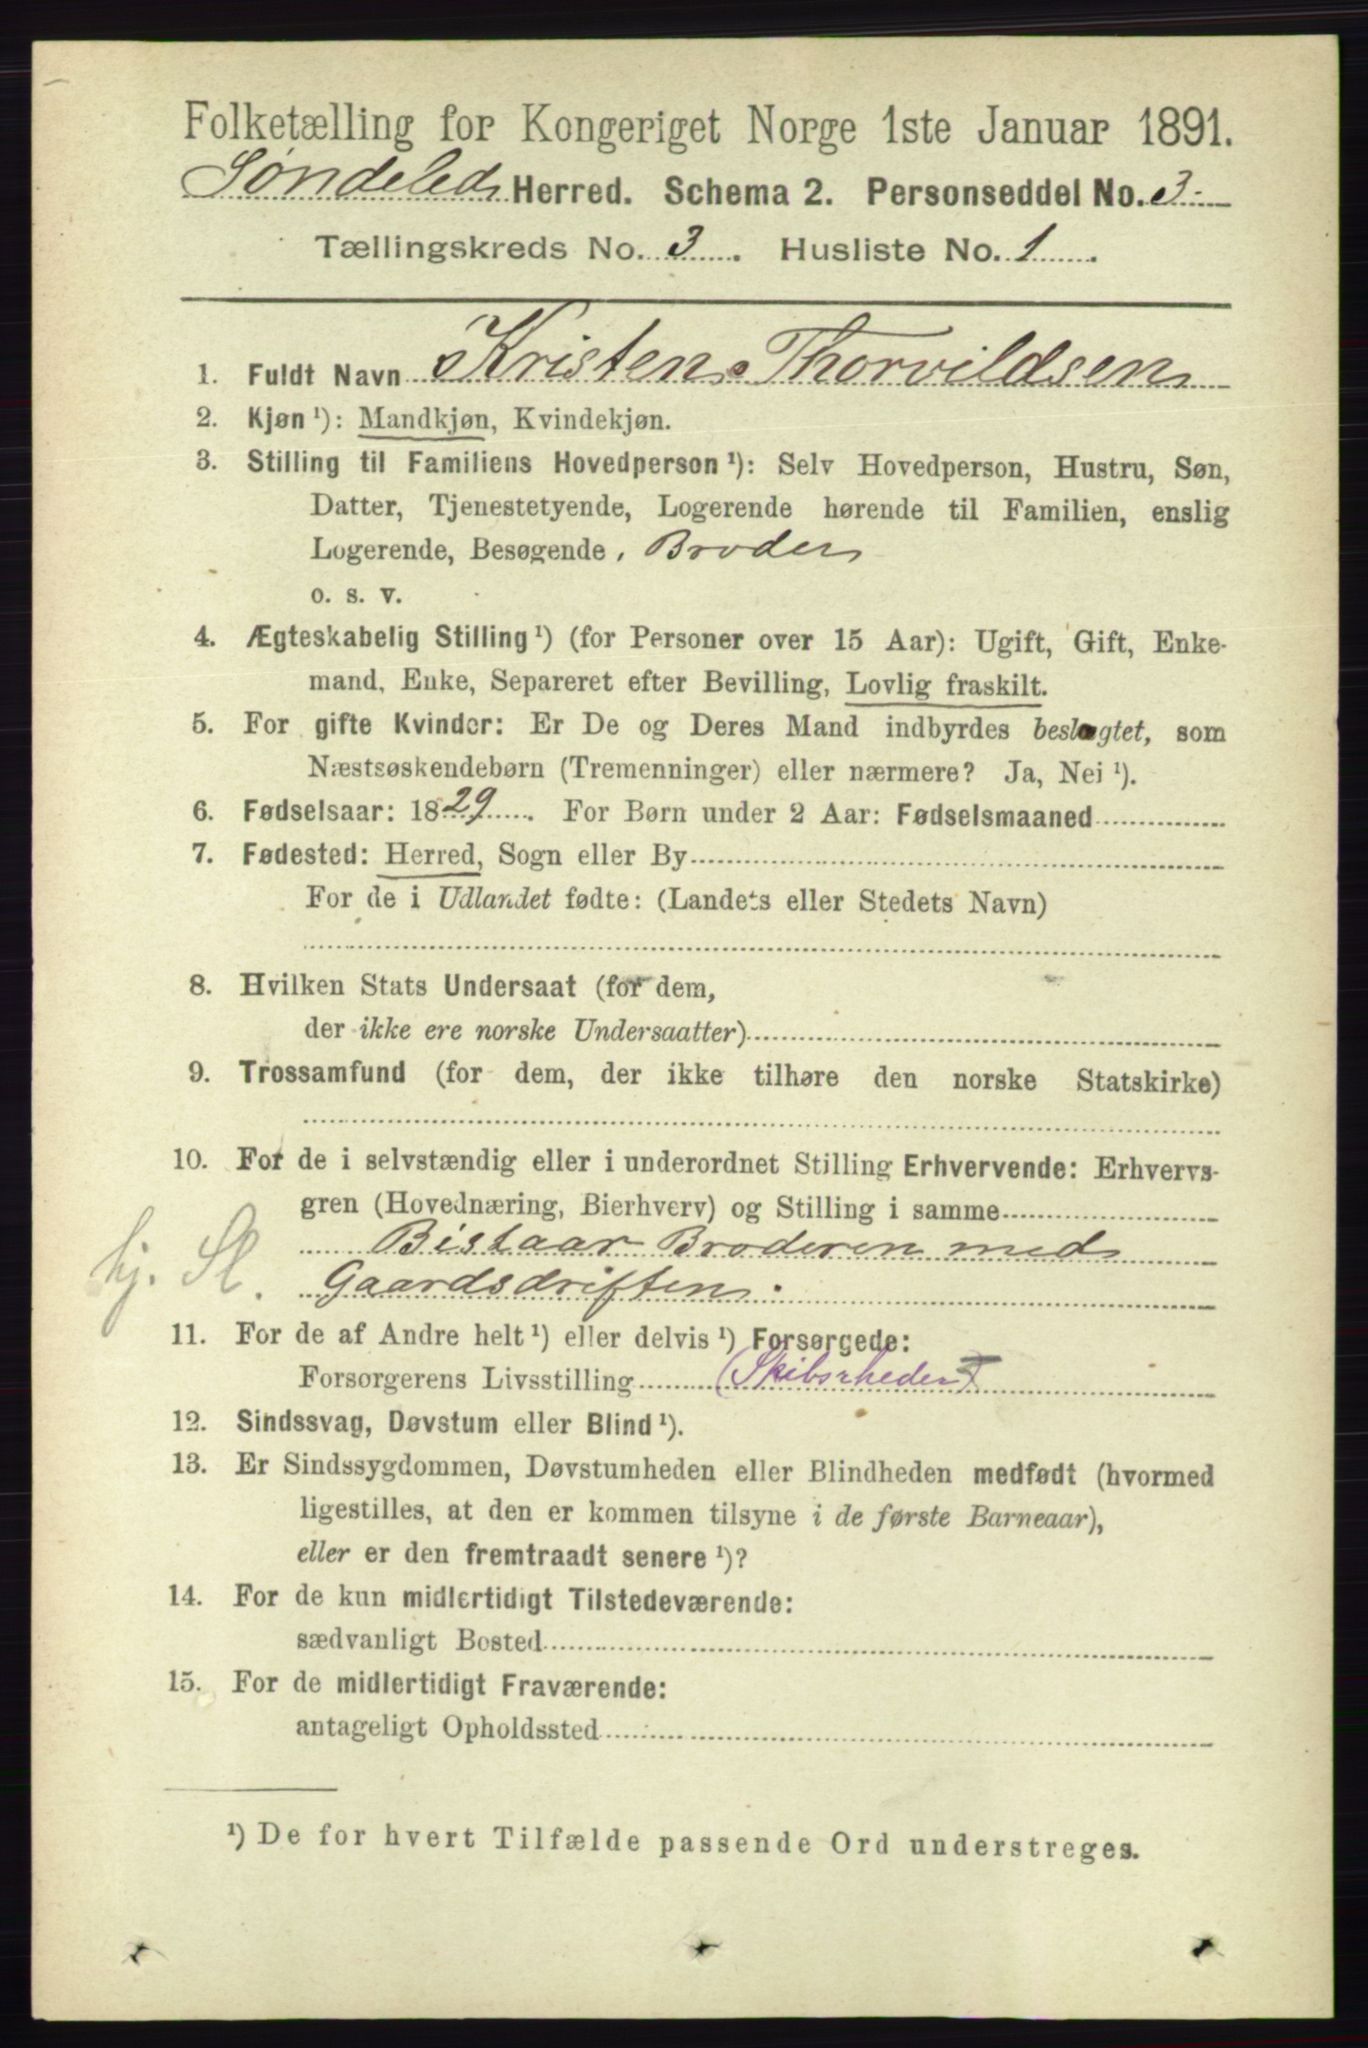 Folketælling for Kongeriget Norge 1ste Januar 1891.
Søndeled Herred. Schema 2. Personseddel No. 3
Tællingskreds No. 3. Husliste No. 1.
1. Fuldt Navn Kristen Thorvildsen
2. Kjøn ¹): Mandkjøn, Kvindekjøn.
3. Stilling til Familiens Hovedperson ¹): Selv Hovedperson, Hustru, Søn,
Datter, Tjenestetyende, Logerende hørende til Familien, enslig
Logerende, Besøgende, Broder
o. s. v.
4. Ægteskabelig Stilling ¹) (for Personer over 15 Aar): Ugift, Gift, Enke-
mand, Enke, Separeret efter Bevilling, Lovlig fraskilt.
5. For gifte Kvinder: Er De og Deres Mand indbyrdes beslægtet, som
Næstsøskendebørn (Tremenninger) eller nærmere? Ja, Nei ¹).
6. Fødselsaar: 1829. For Børn under 2 Aar: Fødselsmaaned
7. Fødested: Herred, Sogn eller By
For de i Udlandet fødte: (Landets eller Stedets Navn)
8. Hvilken Stats Undersaat (for dem,
der ikke ere norske Undersaatter)
9. Trossamfund (for dem, der ikke tilhøre den norske Statskirke)
10. For de i selvstændig eller i underordnet Stilling Erhvervende: Erhvervs-
gren (Hovednæring, Bierhverv) og Stilling i samme
Bistaar Broderen med
hj. Sl. Gaardsdriften.
11. For de af Andre helt ¹) eller delvis ¹) Forsørgede:
Forsørgerens Livsstilling (Skibsrheder)
12. Sindssvag, Døvstum eller Blind ¹).
13. Er Sindssygdommen, Døvstumheden eller Blindheden medfødt (hvormed
ligestilles, at den er kommen tilsyne i de første Barneaar),
eller er den fremtraadt senere ¹)?
14. For de kun midlertidigt Tilstedeværende:
sædvanligt Bosted
15. For de midlertidigt Fraværende:
antageligt Opholdssted
¹) De for hvert Tilfælde passende Ord understreges.